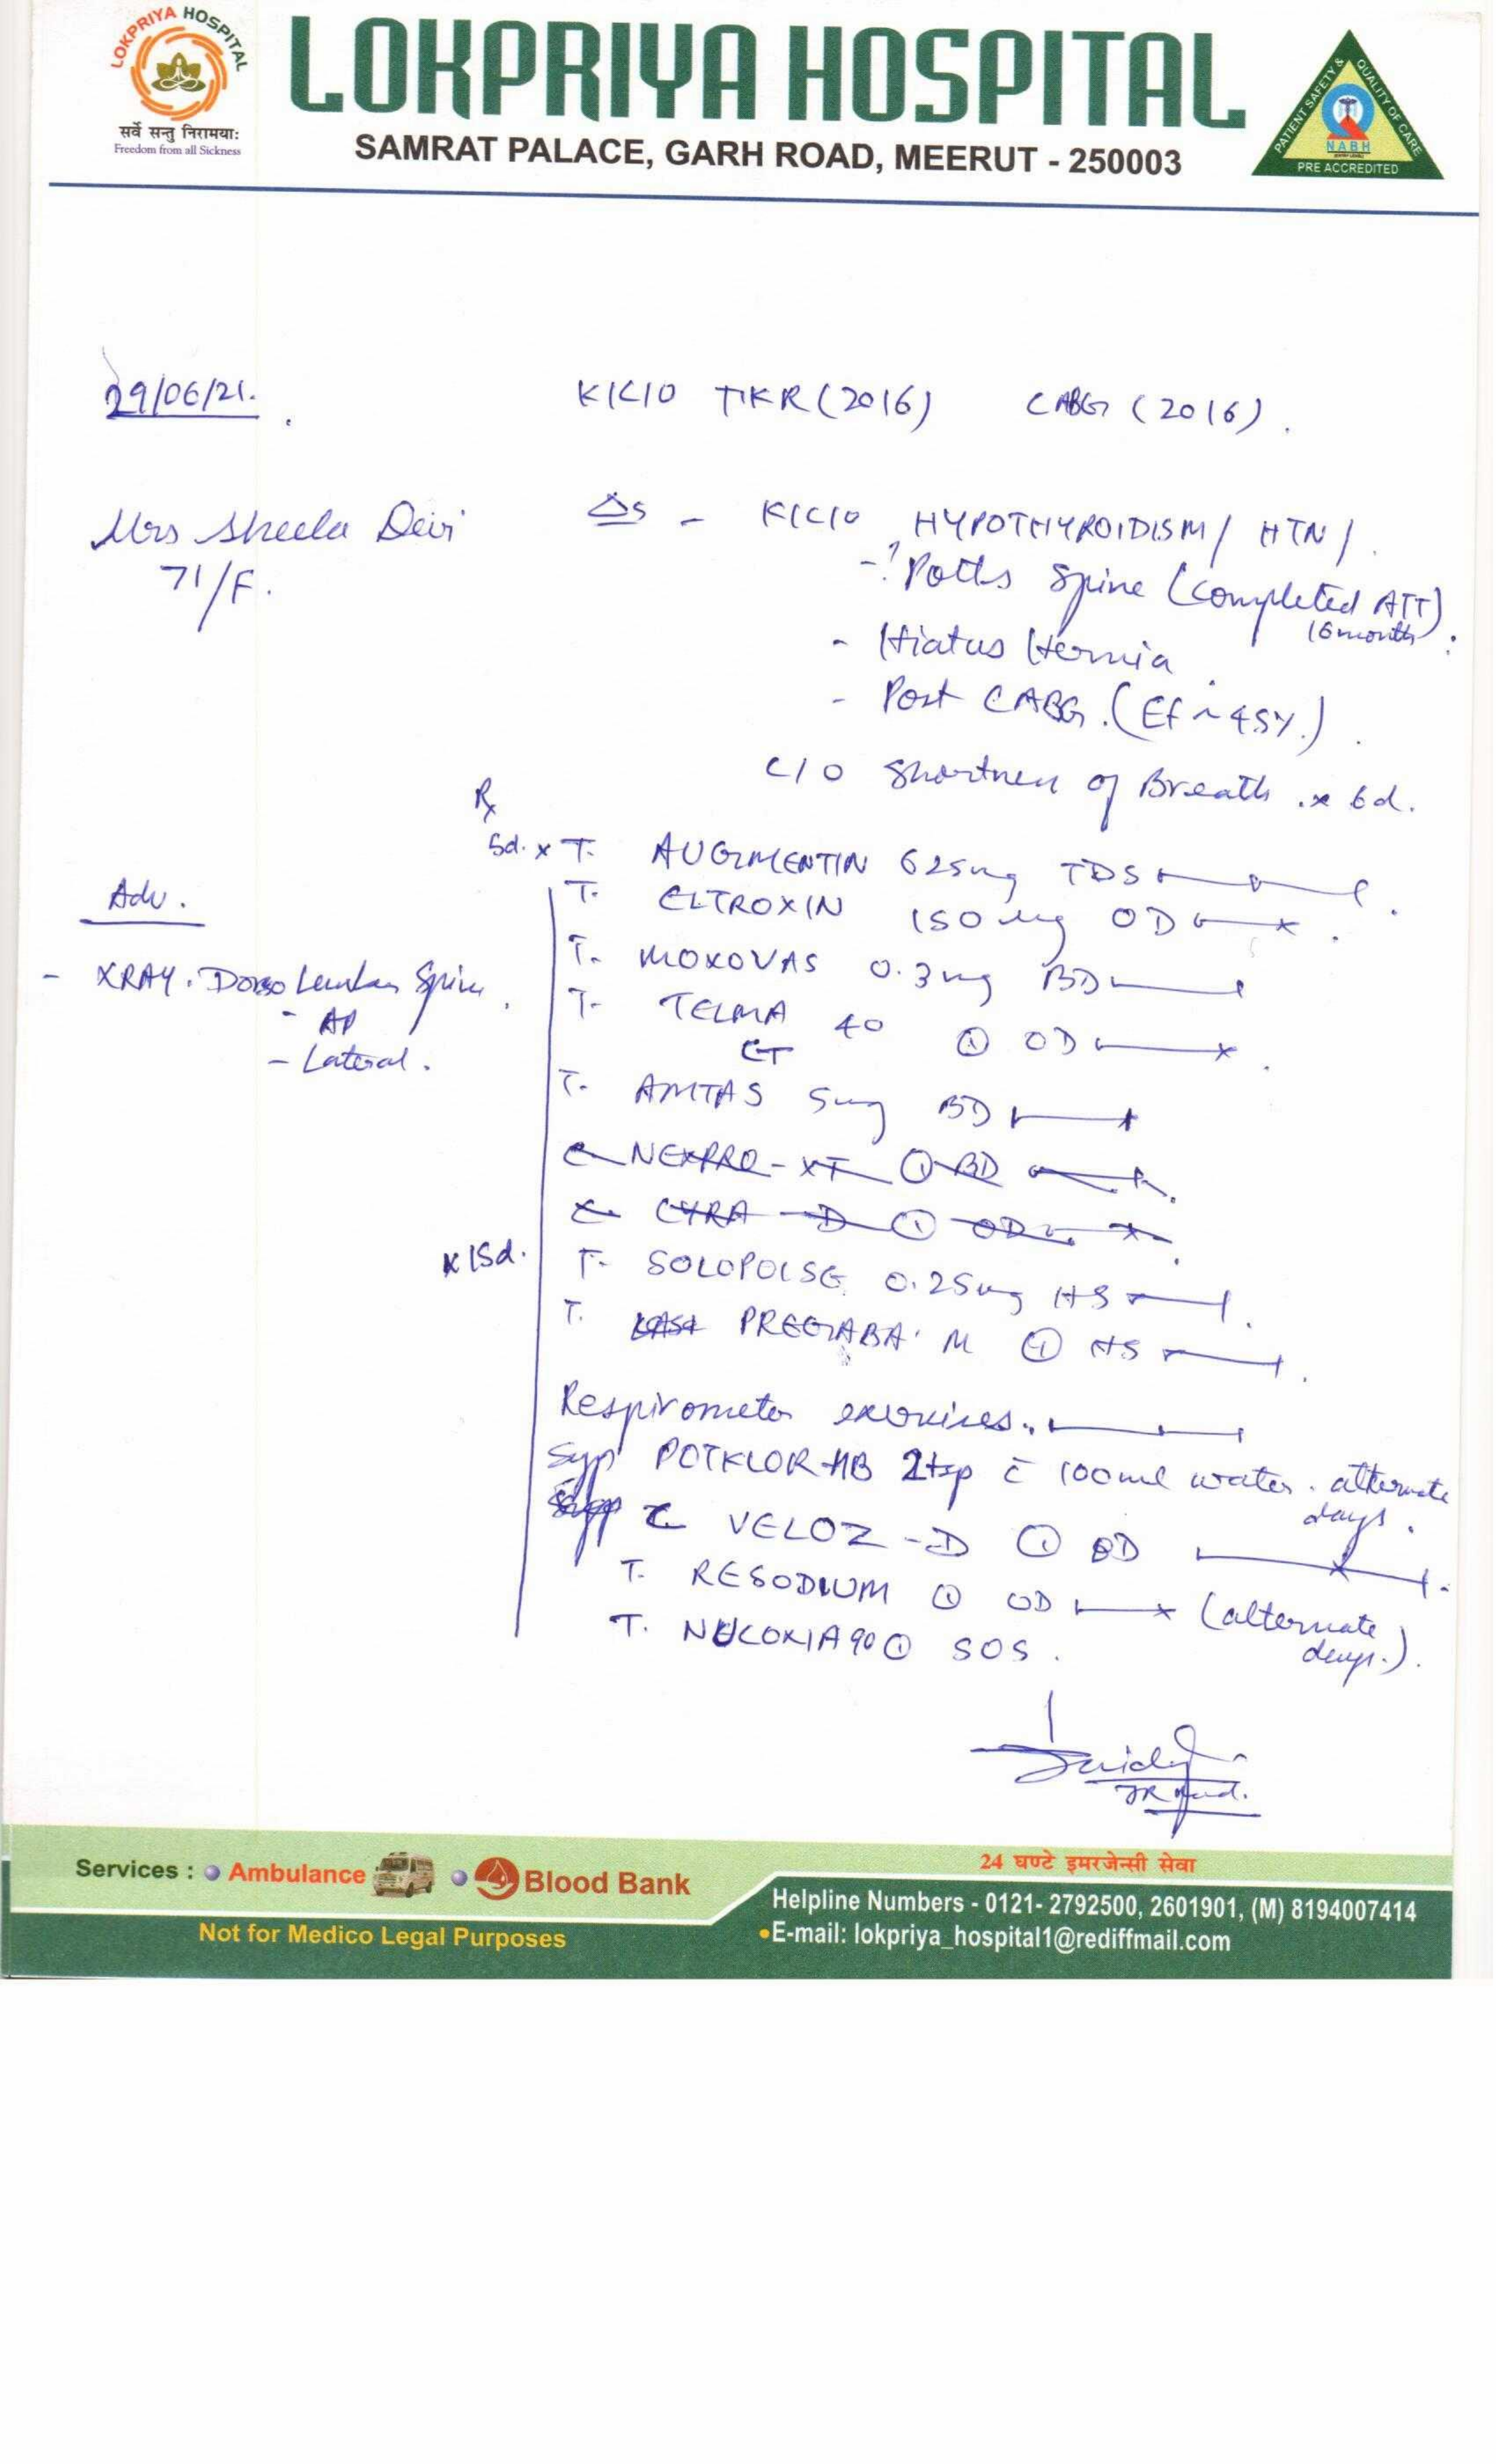 LOKPRIYA HOSPITAL
सर्वे सन्तु निरामयाः
Freedom from all Sickness
LOKPRIYA HOSPITAL
SAMRAT PALACE, GARH ROAD, MEERUT - 250003
PATIENT SAFETY & QUALITY OF CARE
NABH
PRE ACCREDITED
29/06/21.
K/C/O TKR (2016) CABG (2016).
Mrs Sheela Devi
71/F.
Δs - K/C/O HYPOTHYROIDISM / HTN /.
-? Potts Spine (Completed ATT)
16 month
- Hiatus Hernia.
- Post CABG. (Ef ~ 45%).
C/O Shortness of Breath. x 6d.
Rx
5d. x T. AUGMENTIN 625mg TDS
T. ELTROXIN 150 mg OD
T. MOXOVAS 0.3mg BD
T. TELMA 40 ① OD
CT
T. AMTAS 5mg BD
C NEXPRO-XT ① BD
C. CYRA-D ① OD
x 15d.
T. SOLOPOISE 0.25mg HS
T. PREGABA. M ① HS
Respirometer exercises.
Syp POTKLOR-HB 2tsp c̄ 100ml water. alternate
days.
C VELOZ-D ① OD
T. RESODIUM ① OD (alternate
days.).
T. NUCOXIA 90 ① SOS.
Adv.
- XRAY. Dorso Lumbar Spine.
- AP
- Lateral.
Services : Ambulance Blood Bank
Not for Medico Legal Purposes
24 घण्टे इमरजेन्सी सेवा
Helpline Numbers - 0121- 2792500, 2601901, (M) 8194007414
E-mail: lokpriya_hospital1@rediffmail.com